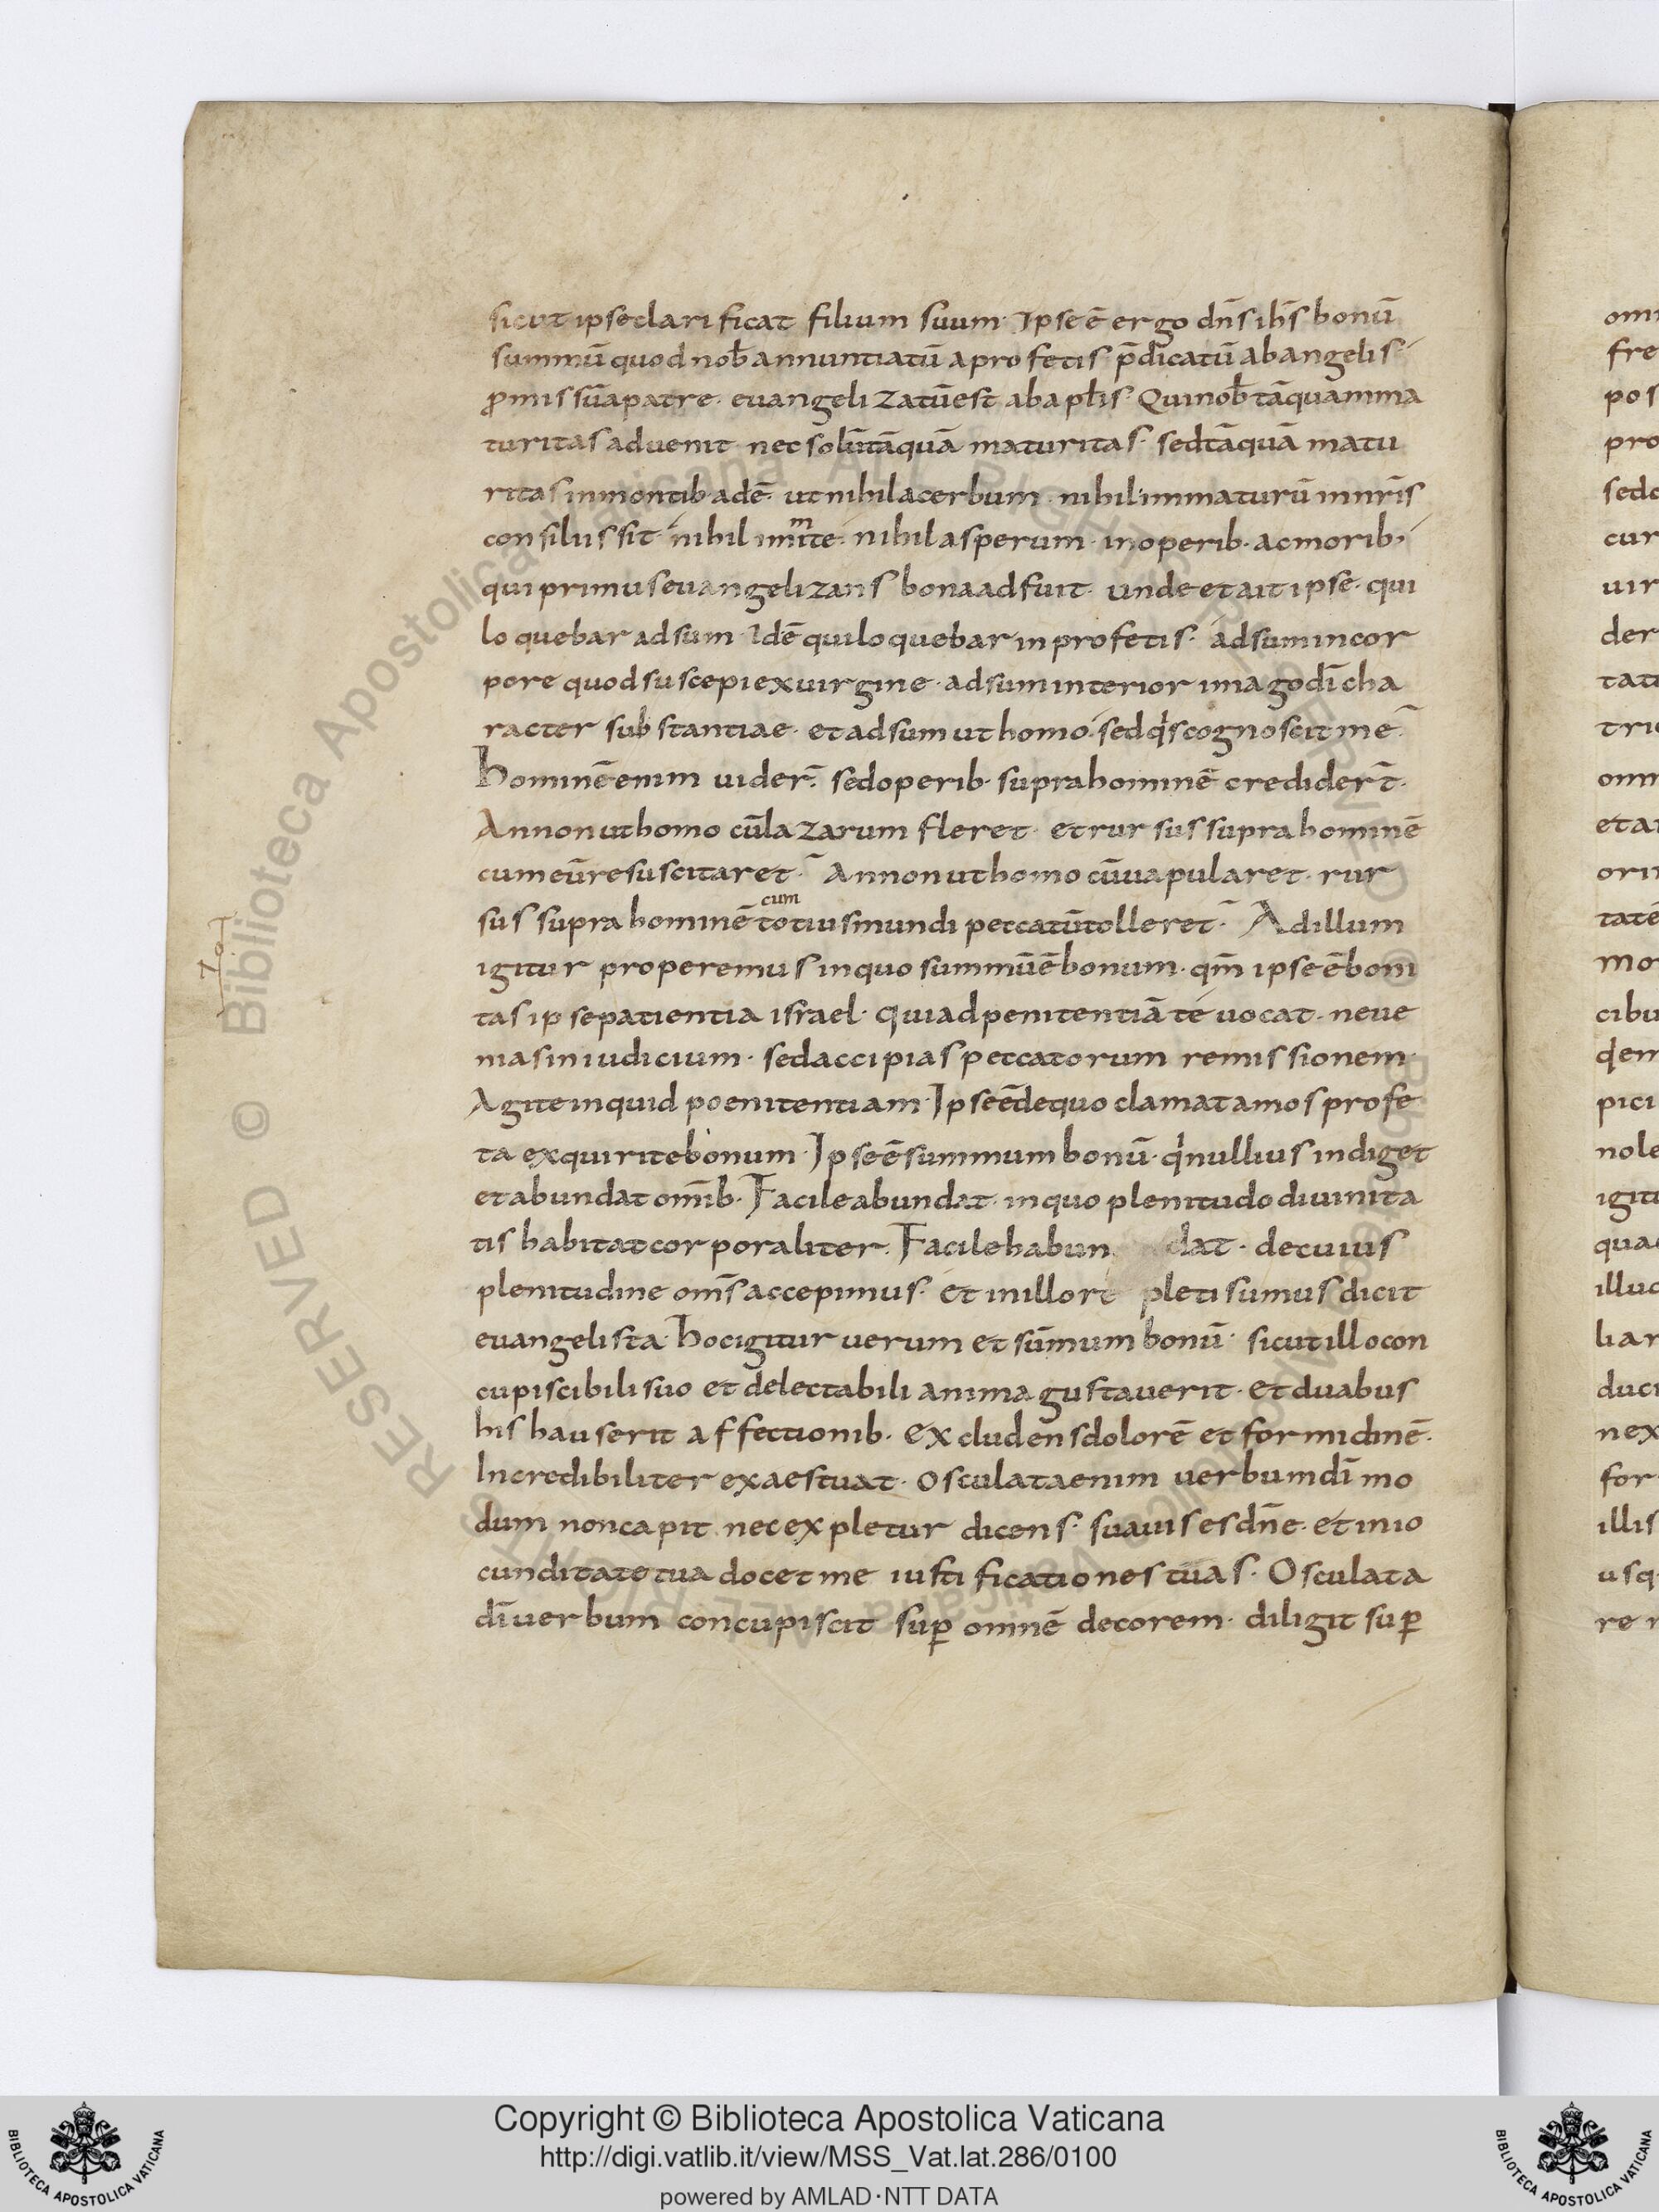 sicut ipse clarificat filium suum. Ipse ē ergo dn̄s ih̄s bonū
summū quod nob̄ annuntiatū a profetis p̄dicatū ab angelis
ꝓmissū a patre. euangelizatū est ab apl̄is. Qui nob̄ tāquam ma
turitas aduenit nec solū tāquā maturitas. sed tāquā matu
ritas in montib. adē. ut nihil acerbum. nihil immaturū in nr̄is
consiliis sit. nihil immite. nihil asperum. in operib. ac morib.
qui primus euangelizans bona adfuit. unde et ait ipse. qui
loquebar adsum. Idē qui loquebar in profetis. adsum in cor
pore quod suscepi ex uirgine. adsum interior imago dī cha
racter substantiae. et adsum ut homo. sed q's cognoscit me
Hominē enim uider̄. sed operib. supra hominē credider̄t.
An non ut homo cū lazarum fleret. et rursus supra hominē
cum eū resuscitaret. An non ut homo cū uapularet. rur
sus supra hominē cum totius mundi peccatū tolleret. Ad illum
igitur properemus in quo summū ē bonum. qm̄ ipse ē boni
tas ipse patientia israel. qui ad penitentiā te uocat. ne ue
nias in iudicium. sed accipias peccatorum remissionem.
Agite inquid poenitentiam. Ipse ē de quo clamat amos profe
ta exquirite bonum. Ipse ē summum bonū. q'nullius indiget
et abundat om̄ib. Facile abundat. in quo plenitudo diuinita
tis habitat corporaliter. Facile habun dat. de cuius
plenitudine om̄s accepimus. et in illo re pleti sumus dicit
euangelista. Hoc igitur uerum et sūmum bonū. sicut illo con
cupiscibili suo et delectabili anima gustauerit. et duabus
his hauserit affectionib. excludens dolorē et formidinē.
Incredibiliter exaestuat. osculata enim uerbum dī mo
dum non capit nec expletur dicens. suauis es dn̄e. et in io
cunditate tua docet me iustificationes tuas. Osculata
dī uerbum concupiscit suꝑ omnē decorem. diligit suꝑ
Copyright © Biblioteca Apostolica Vaticana
http://digi.vatlib.it/view/MSS_Vat.lat.286/0100
powered by AMLAD·NTT DATA
BIBLIOTECA APOSTOLICA VATICANA
BIBLIOTECA APOSTOLICA VATICANA